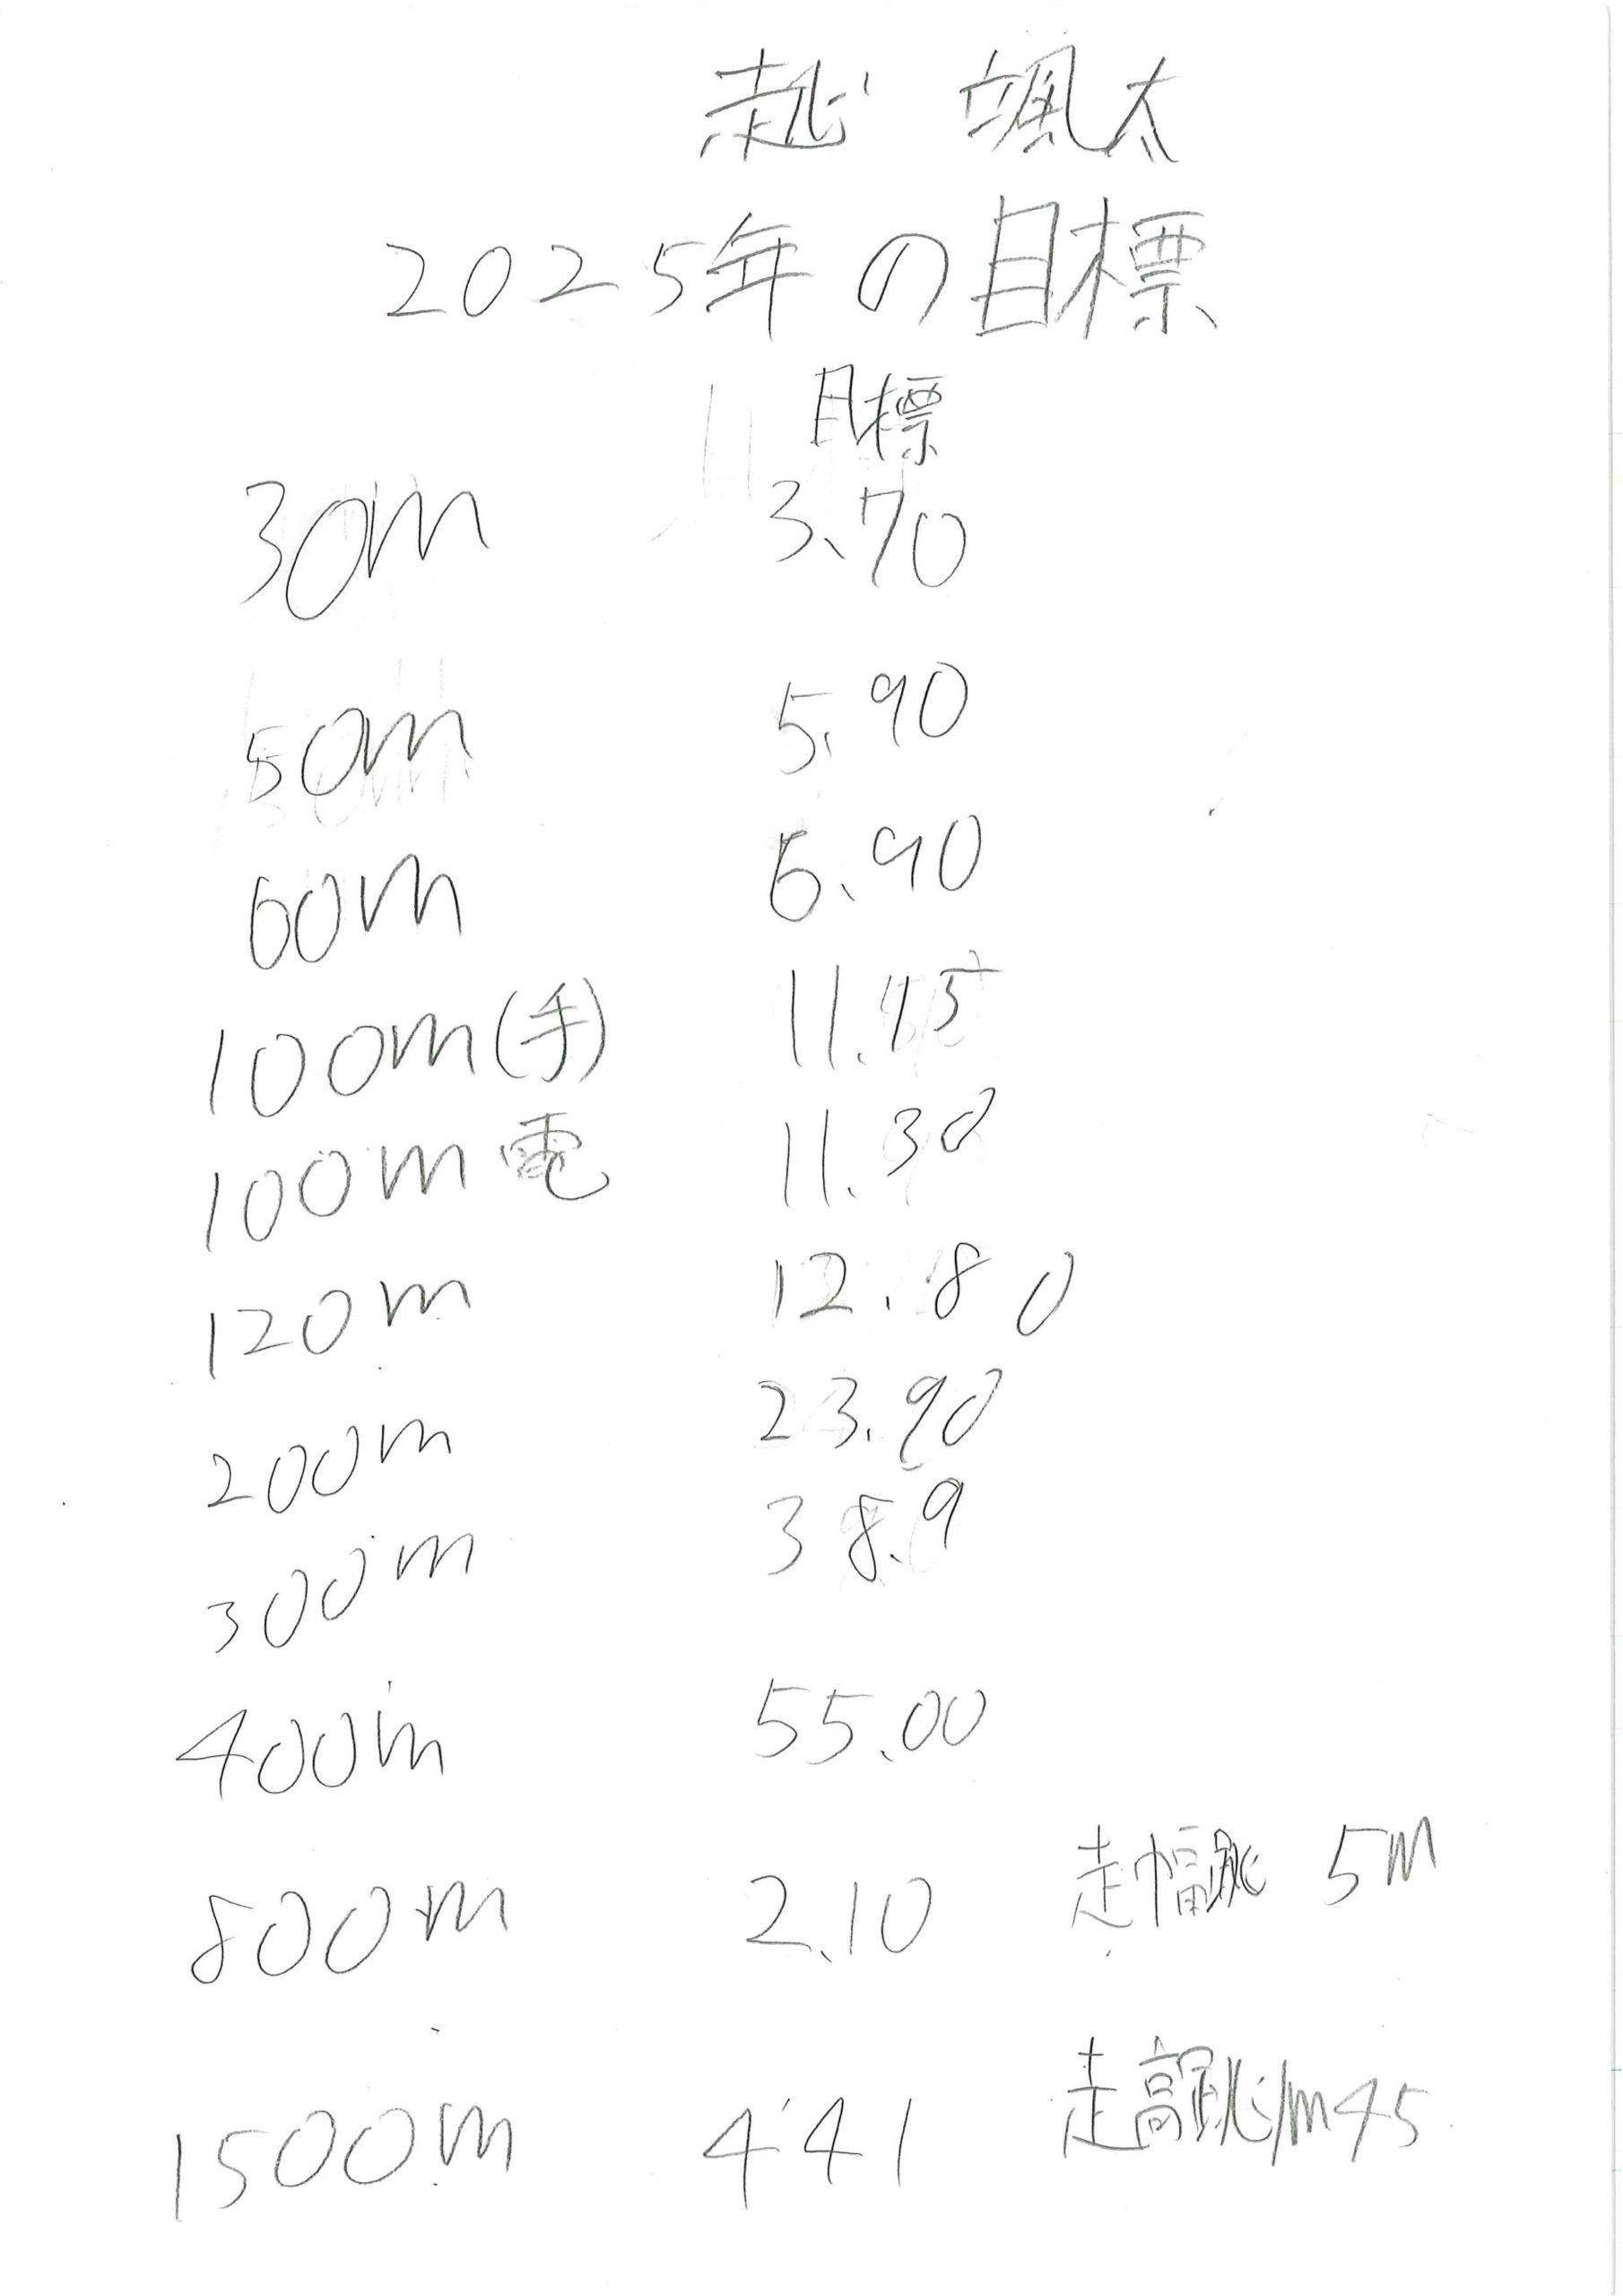 颯太
2025年の目標
目標
30m 3.70
50m 5.90
60m 6.90
100m(手) 11.15
100m電 11.30
120m 12.80
200m 23.90
300m 38.9
400m 55.00
800m 2.10 走幅跳 5m
1500m 4'41 走高跳1m45